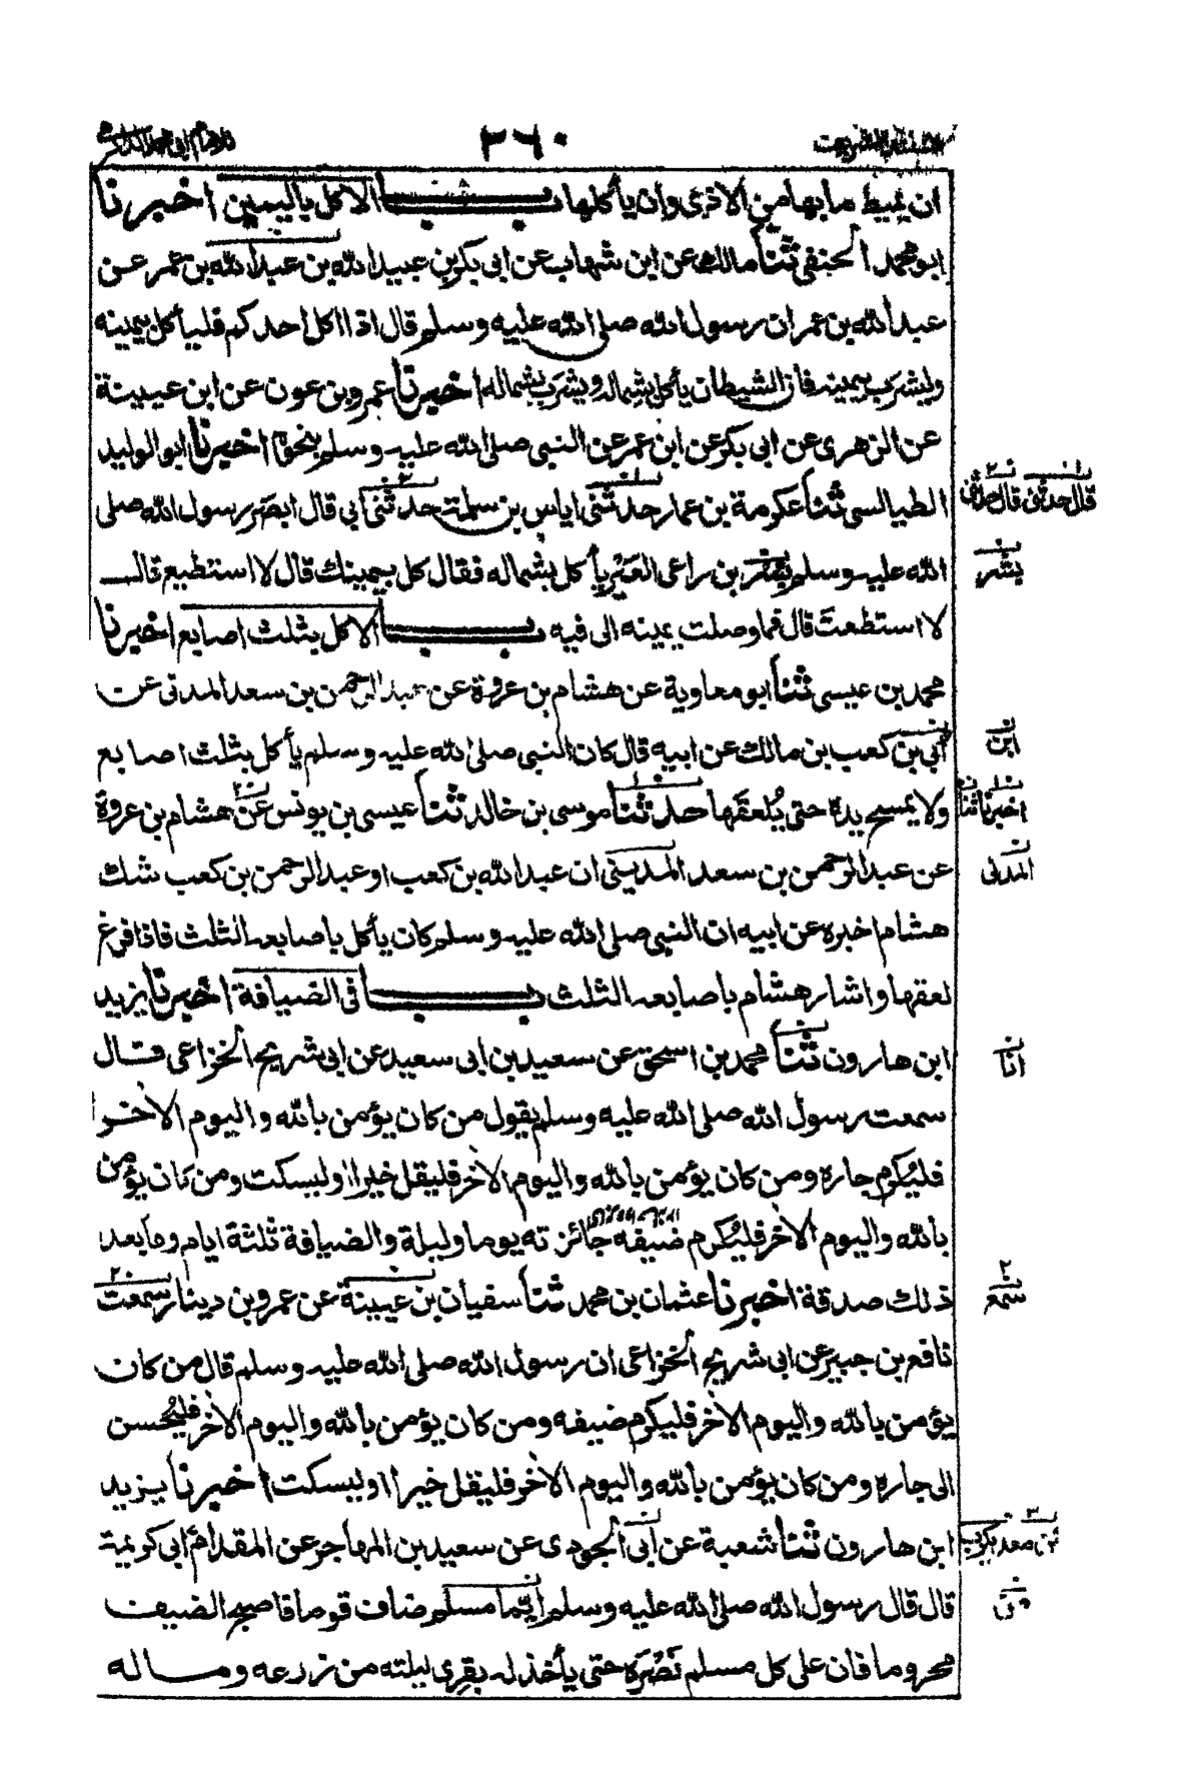 ٢٦٠
ان يميط ما بها من الاذى وان يأكلها باب الاكل باليمين اخبرنا
ابو محمد الحنفي ثنا مالك عن ابن شهاب عن ابي بكر بن عبيد الله بن عبد الله بن عمر عن
عبد الله بن عمر ان رسول الله صلى الله عليه وسلم قال اذا اكل احدكم فليأكل بيمينه
وليشرب بيمينه فان الشيطان يأكل بشماله ويشرب بشماله اخبرنا عمرو بن عون عن ابن عيينة
عن الزهرى عن ابى بكر عن ابن عمر عن النبى صلى الله عليه وسلم بنحوه اخبرنا ابو الوليد
الطيالسى ثنا عكرمة بن عمار حدثنى اياس بن سلمة حدثنى ابى قال ابصر رسول الله صلى
قال حدثنى قال حدثنى
الله عليه وسلم بسر بن راعى العير يأكل بشماله فقال كل بيمينك قال لا استطيع قال
بشر
لا استطعت قال فما وصلت يمينه الى فيه باب الاكل بثلث اصابع اخبرنا
محمد بن عيسى ثنا ابو معاوية عن هشام بن عروة عن عبد الرحمن بن سعد المدنى عن
ابى بن كعب بن مالك عن ابيه قال كان النبى صلى الله عليه وسلم يأكل بثلث اصابع
ابن
ولا يمسح يده حتى يلعقها حدثنا موسى بن خالد ثنا عيسى بن يونس عن هشام بن عروة
اخبرنا ثنا
عن عبد الرحمن بن سعد المدينى ان عبد الله بن كعب او عبد الرحمن بن كعب شك
المدنى
هشام اخبره عن ابيه ان النبى صلى الله عليه وسلم كان يأكل باصابعه الثلث فاذا فرغ
لعقها واشار هشام باصابعه الثلث باب فى الضيافة اخبرنا يزيد
ابن هارون ثنا محمد بن اسحق عن سعيد بن ابى سعيد عن ابى شريح الخزاعى قال
انا
سمعت رسول الله صلى الله عليه وسلم يقول من كان يؤمن بالله واليوم الاخر
فليكرم جاره ومن كان يؤمن بالله واليوم الاخر فليقل خيرا او ليسكت ومن كان يؤمن
بالله واليوم الاخر فليكرم ضيفه جائزته يوما وليلة والضيافة ثلثة ايام وما بعد
ذلك صدقة اخبرنا عثمان بن محمد ثنا سفيان بن عيينة عن عمرو بن دينار سمعت
سمع
نافع بن جبير عن ابى شريح الخزاعى ان رسول الله صلى الله عليه وسلم قال من كان
يؤمن بالله واليوم الاخر فليكرم ضيفه ومن كان يؤمن بالله واليوم الاخر فليحسن
الى جاره ومن كان يؤمن بالله واليوم الاخر فليقل خيرا او ليسكت اخبرنا يزيد
ابن هارون ثنا شعبة عن ابى الجودى عن سعيد بن المهاجر عن المقدام ابى كريمة
بن معد يكرب
قال قال رسول الله صلى الله عليه وسلم ايما مسلم ضاف قوما فاصبح الضيف
محروما فان على كل مسلم نصره حتى يأخذ له بقرى ليلته من زرعه وماله